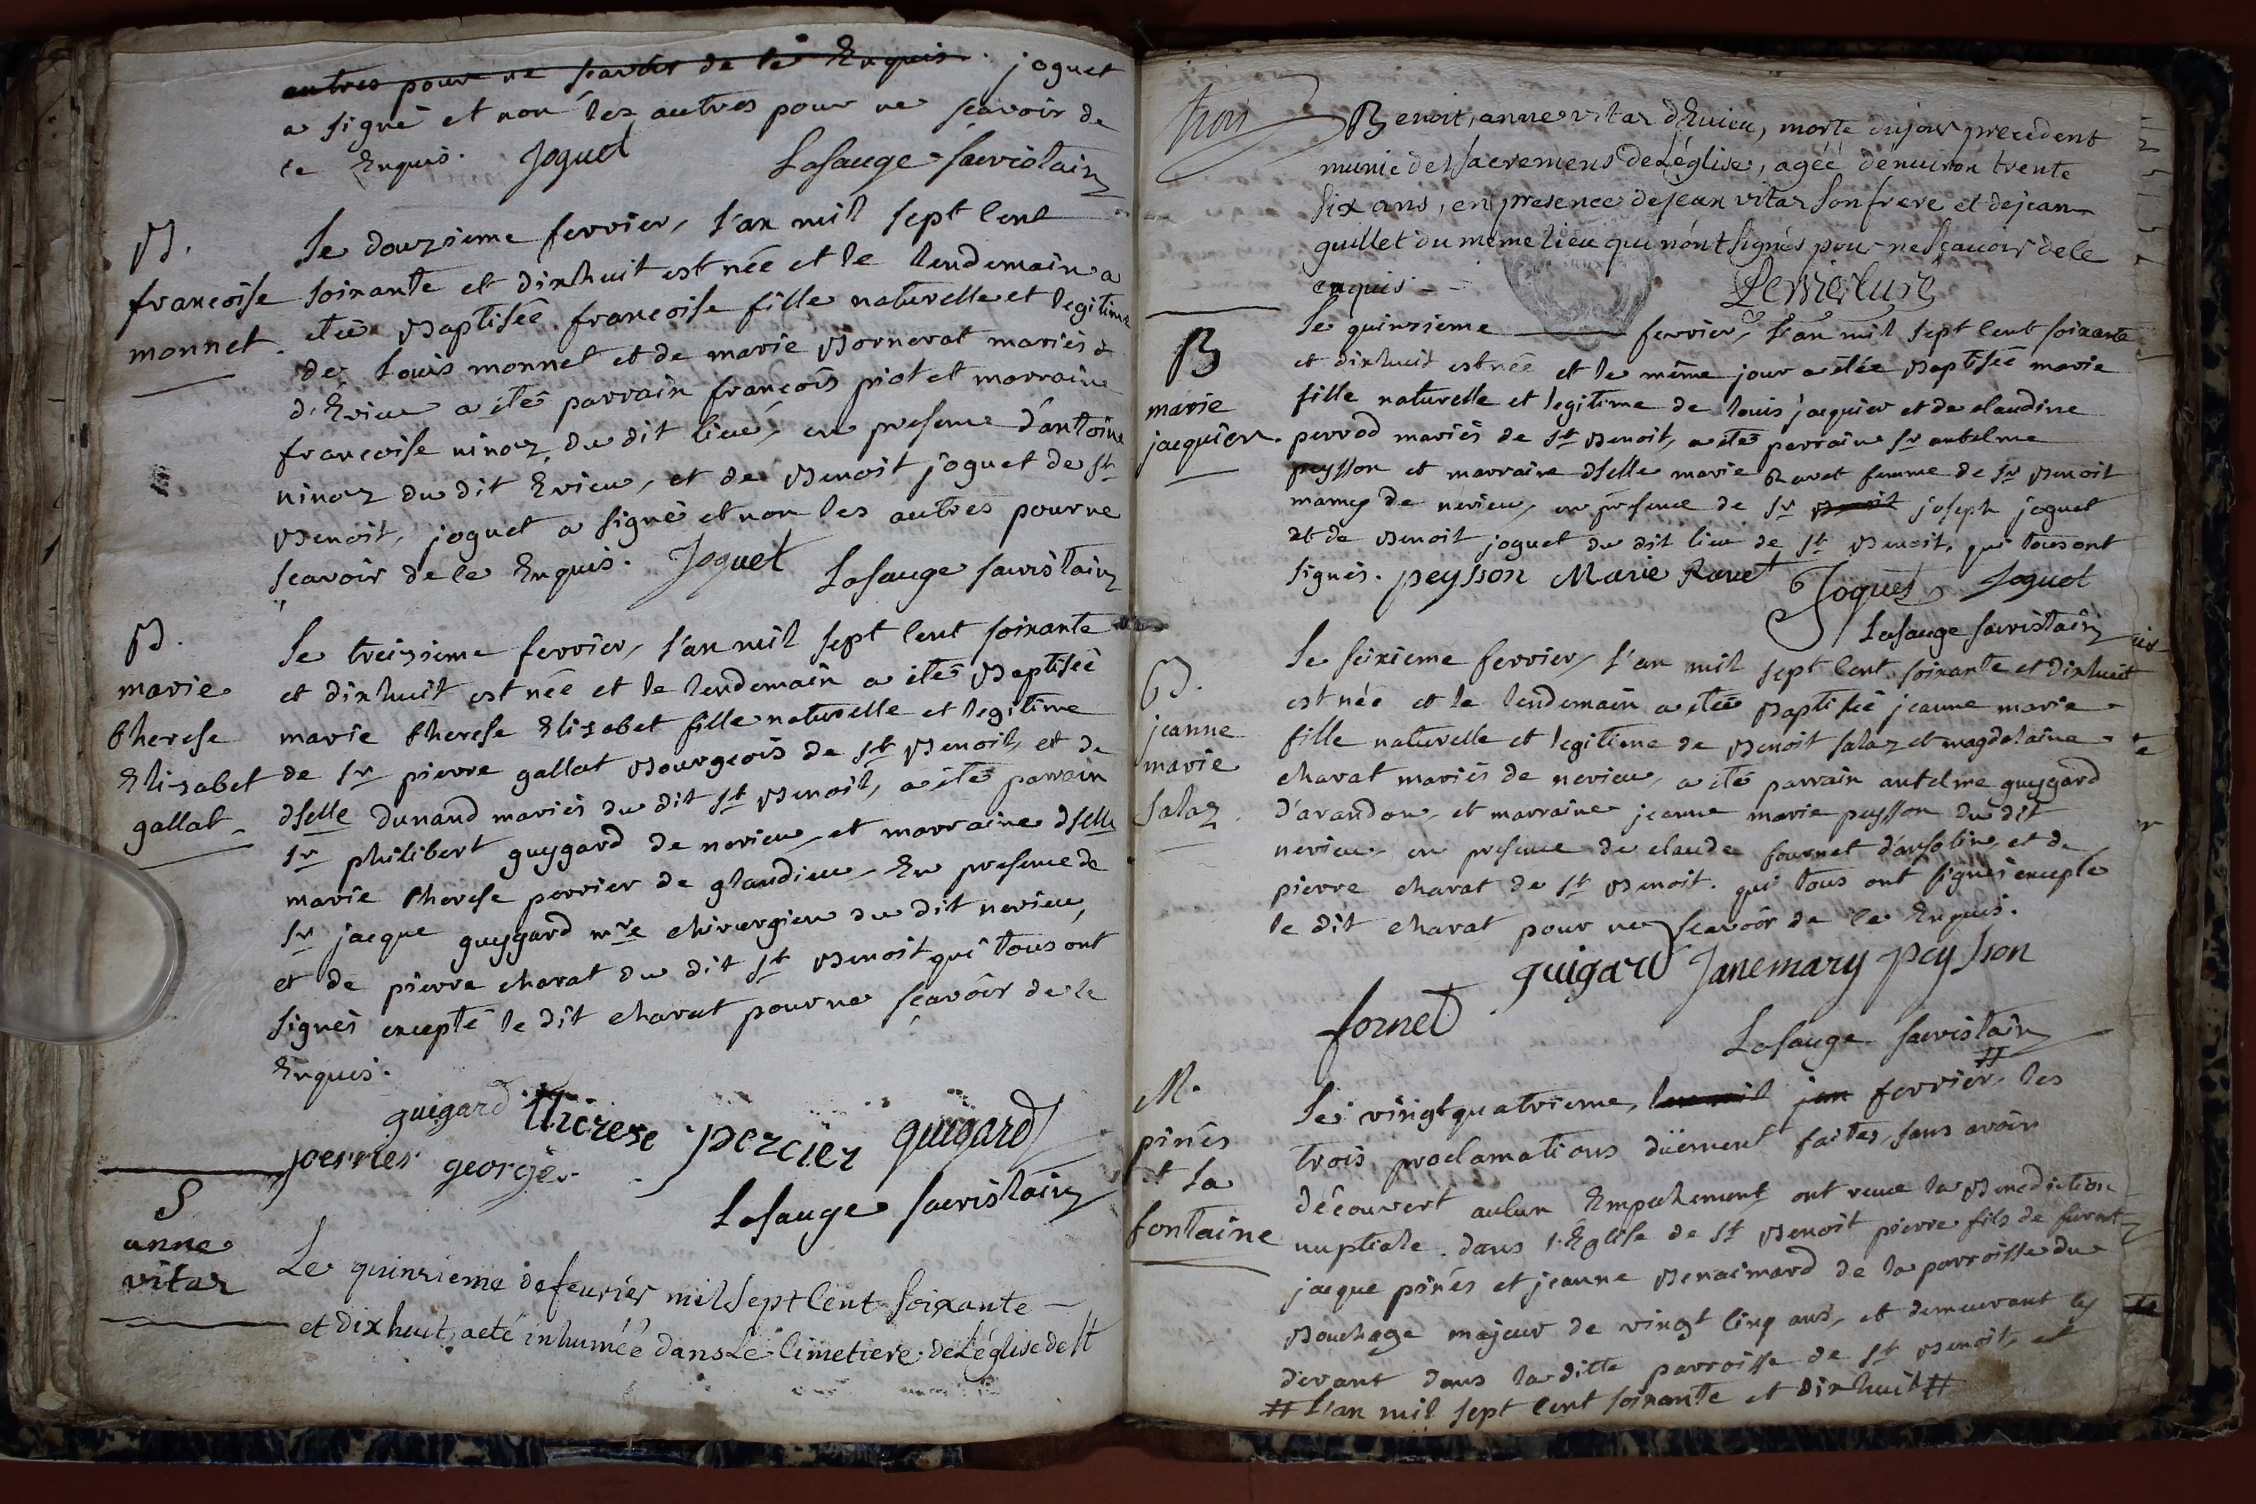 autres pour ne scavoir de le Enquis. joguet
a signé et non les autres pour ne scavoir de
ce Enquis. Joguet Lasauge Sacristain
B.
françoise
monnet.
Le douzieme ferrier, l'an mil sept Cent
soixante et dixhuit est née et le lendemain a
etée Baptisée françoise fille naturelle et legitime
de Louis monnet et de marie Bornerat mariés
d'Evieu a etés parrain françois piot et marraine
françoise ninoz du dit lieu, en presence d'antoine
ninoz du dit Evieu, et de Benoit joguet de St
Benoit, joguet a signé et non les autres pour ne
scavoir de le Enquis. Joguet Lasauge sacristain
B.
marie
therese
Elizabet
gallat
Le treizieme ferrier, l'an mil sept Cent soixante
et dixhuit est née et le lendemain a étés Baptiseé
marie therese Elisabet fille naturelle et legitime
de Sr pierre gallat Bourgeois de St Benoit, et de
dselle Dunand mariés du dit St Benoit, a étés parrain
Sr philibert guygard de nerieu, et marraine dselle
marie therese perrier de glandieu, En presence de
Sr jacque guygard mre chirurgien du dit nerieu,
et de pierre charat du dit St Benoit qui tous ont
signés excepté le dit charat pour ne scavoir de le
Enquis.
guigard therese percier guigard
perrier george
Lasauge sacristain
S
anne
vitaz
Le quinzieme de feurier mil sept Cent soixante
et dix huit, a eté inhumée dans le Cimetiere de L'église de St
Benoit, anne vitaz d'Euieu, morte du jour precedent
munie des sacremens de L'église, agéé d'enuiron trente
six ans, en presence de jean vitaz son frere et de jean
guillet du méme lieu qui n'ont signés pour ne sçauoir de le
enquis
Perrier curé
B
marie
jacquier.
Le quinzieme ferrier, l'an mil sept Cent soixante
et dixhuit est née et le même jour a étée Baptisée marie
fille naturelle et legitime de louis jacquier et de claudine
perrod mariés de St Benoit, a étés parrain Sr antelme
peysson et marraine dselle marie Ravet femme de Sr Benoit
mamey de nerieu, en presence de Sr Benoit joseph joguet
et de Benoit joguet du dit lieu de St Benoit, qui tous ont
signés. peysson Marie Ravet Joguet Joguet
Lasauge sacristain
B.
jeanne
marie
salaz.
Le seixieme ferrier, l'an mil sept Cent soixante et dixhuit
est née et le lendemain a étée Baptisée jeanne marie
fille naturelle et legitime de Benoit salaz et magdelaine
charat mariés de nerieu, a étés parrain antelme guygard
d'arandon, et marraine jeanne marie peysson du dit
nerieu, en presence de claude fournet d'ansolin, et de
pierre charat de St Benoit. qui tous ont signés excepté
le dit charat pour ne scavoir de le Enquis.
guigard Janemary peysson
fornet
Lasauge sacristain
M.
pinês
et La
fontaine
Le vingtquatrieme, ferrier, # les
trois proclamations düement faites, sans avoir
découvert aucun Empechement, ont reçue la Benediction
nuptiale. dans l'Eglise de St Benoit pierre fils de
jacque pinês et jeanne Benaimard de la parroisse du
Bouchage majeur de vingt Cinq ans, et demeurant cy
devant dans la ditte parroisse de St Benoit, et
# L'an mil sept Cent soixante et dixhuit #